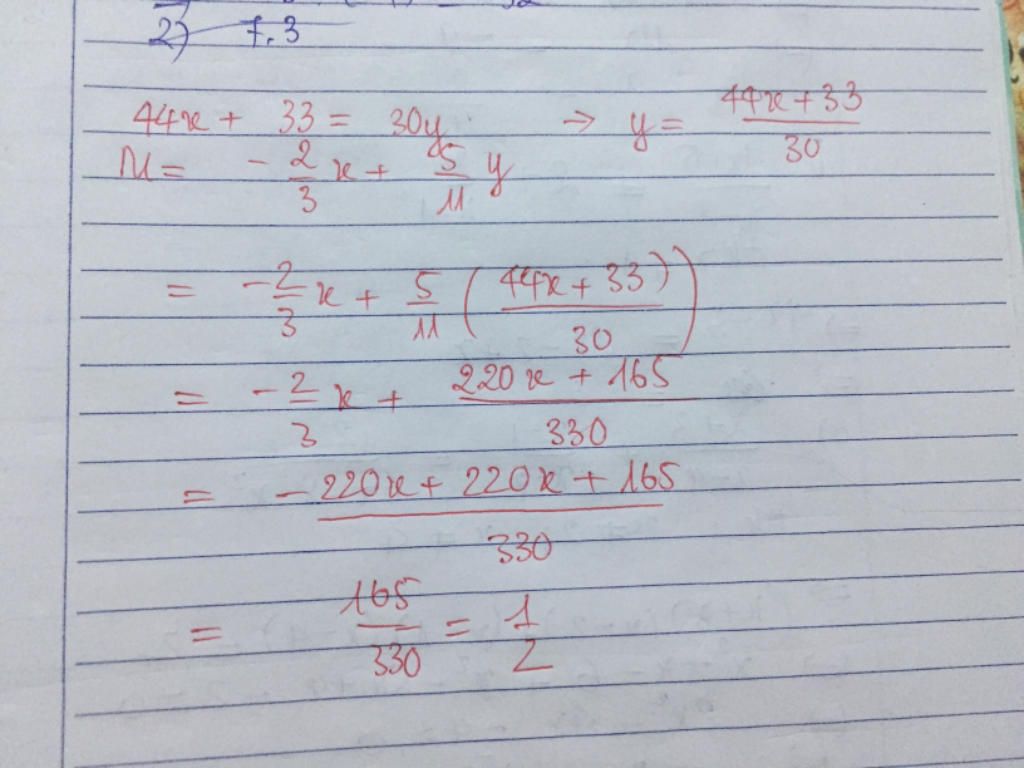 2) 7.3
44x + 33 = 30y → y = \frac{44x + 33}{30}
M = -\frac{2}{3}x + \frac{5}{11}y
= -\frac{2}{3}x + \frac{5}{11}\left(\frac{44x + 33)}{30}\right)
= -\frac{2}{3}x + \frac{220x + 165}{330}
= \frac{-220x + 220x + 165}{330}
= \frac{165}{330} = \frac{1}{2}